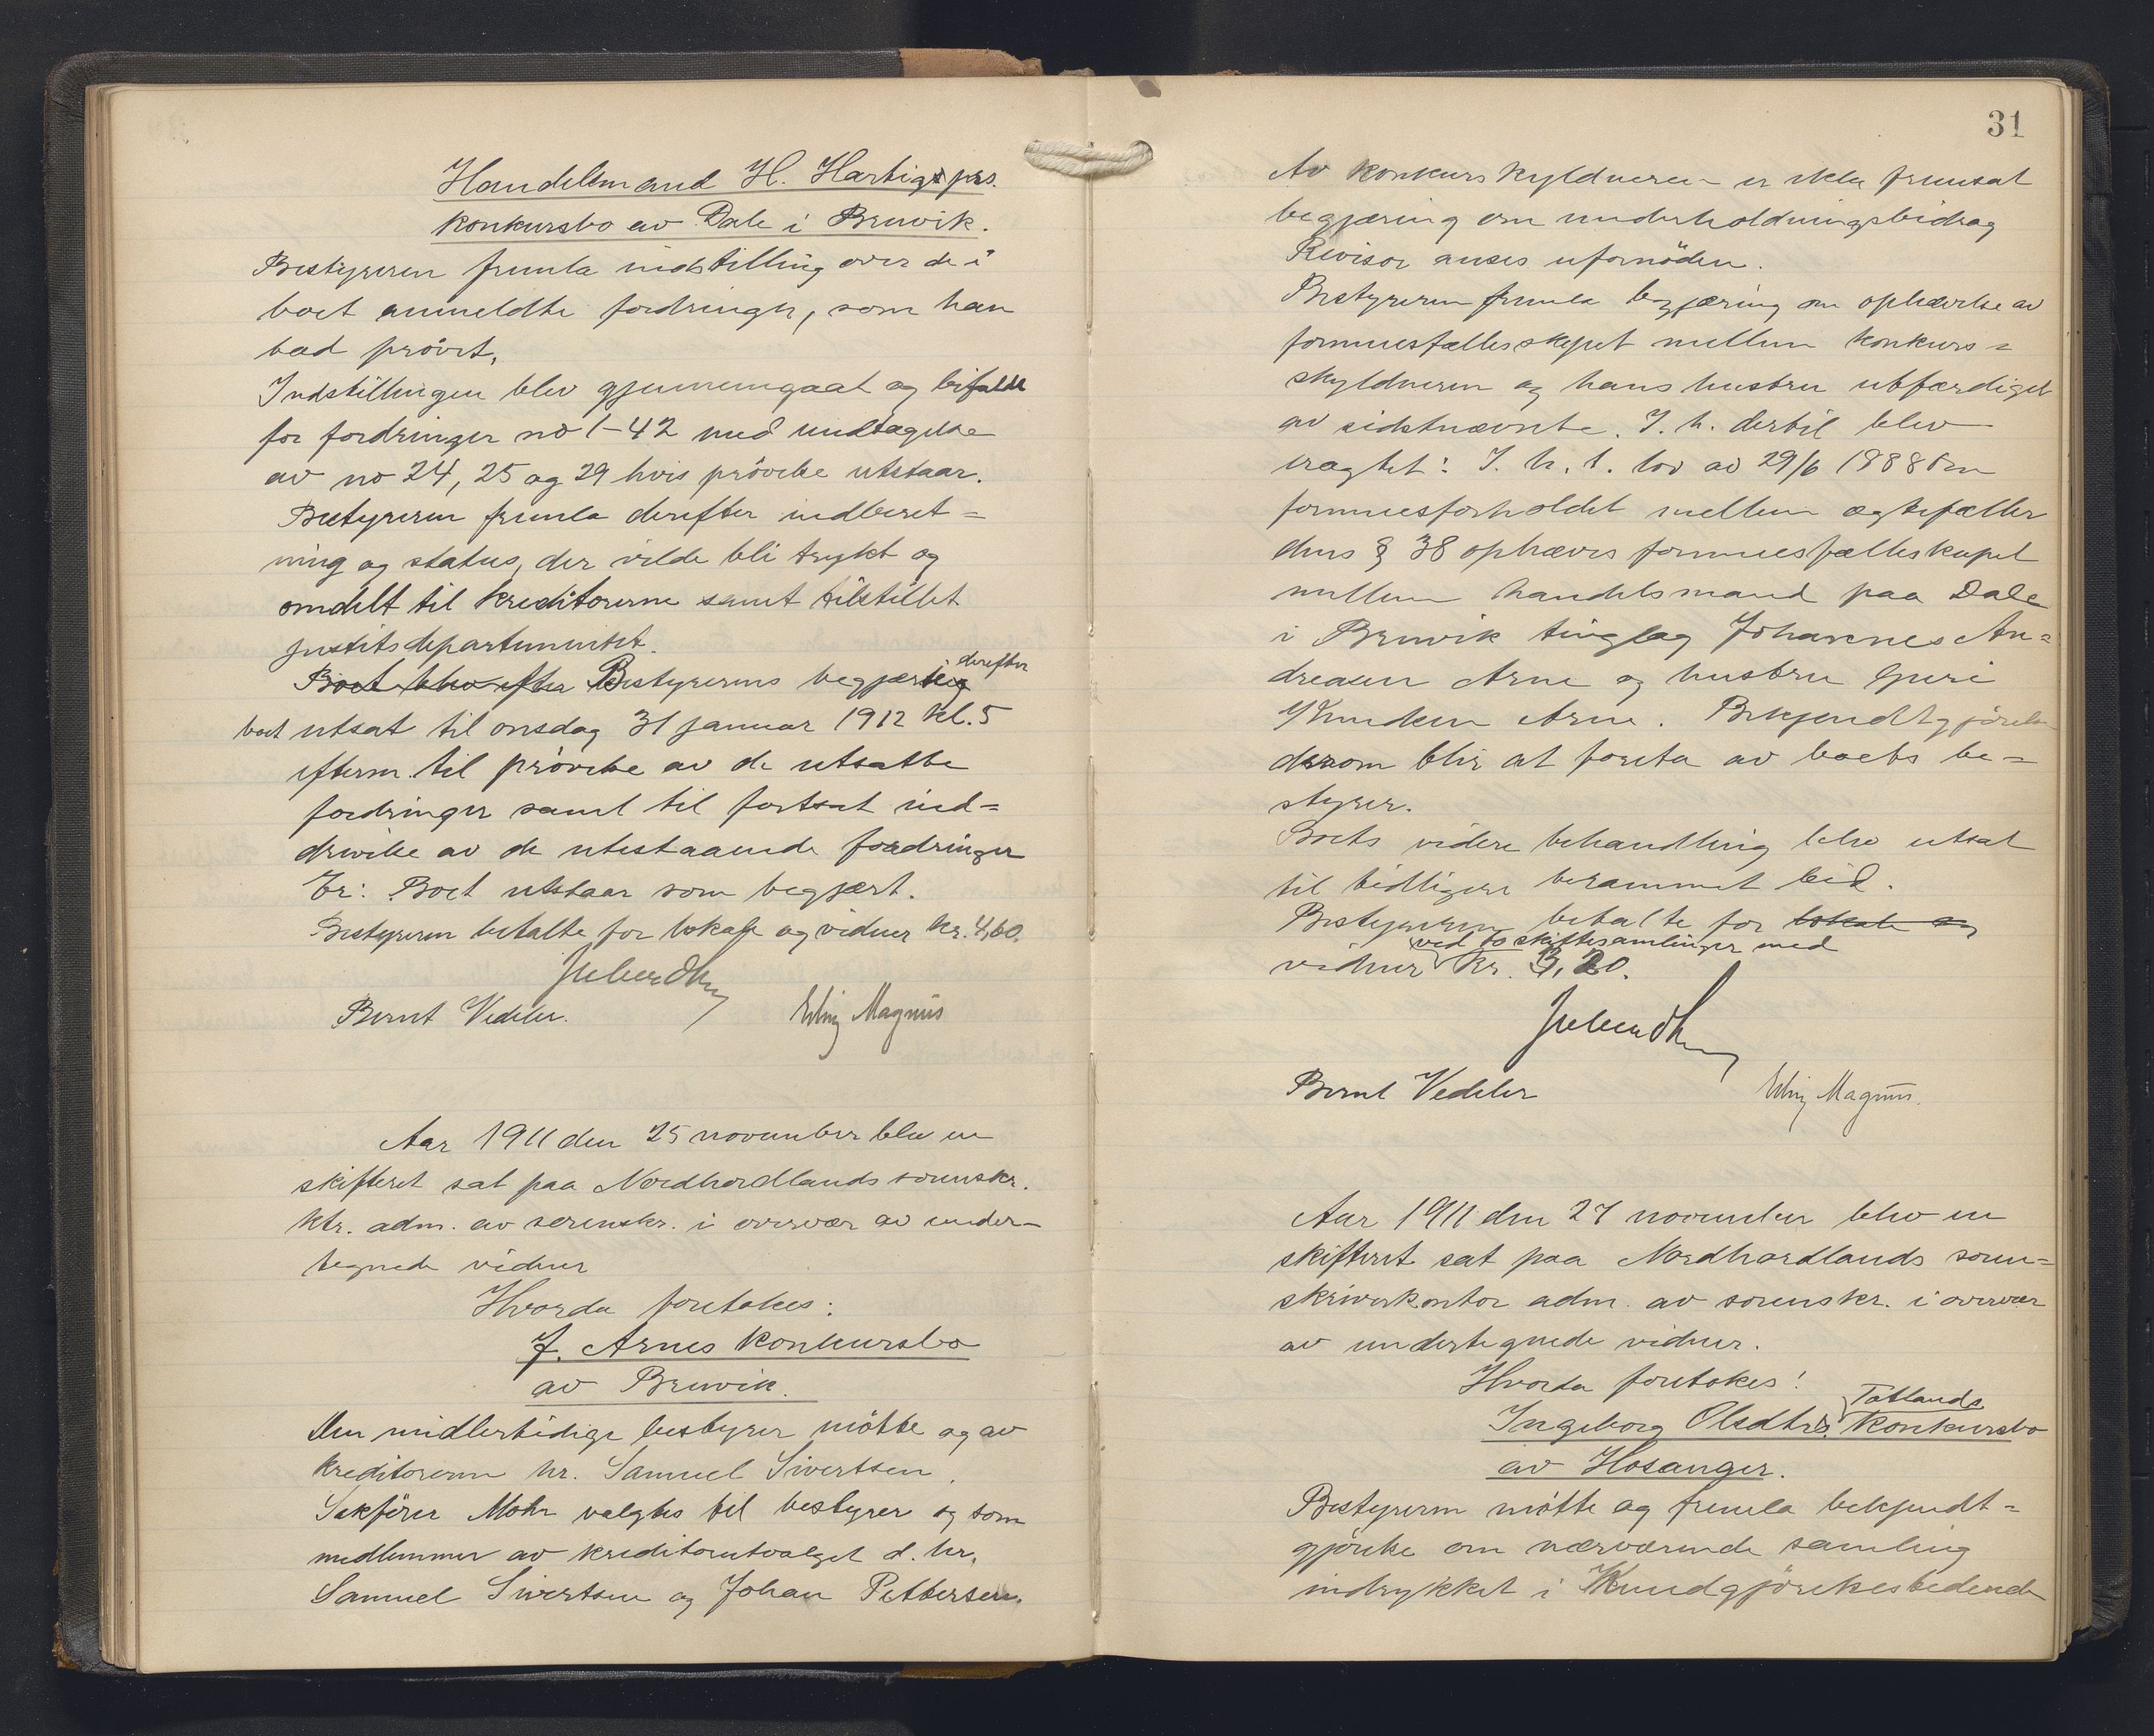 Handelsmand H. Hartigs
konkursbo av Dale i Bruvik.
Bestyreren fremla indstilling over de i
boet anmeldte fordringer, som han
bad prövet.
Indstillingen blev gjennemgaat og bifaldt
for fordringer no 1-42 med undtagelse
av no 24, 25 og 29 hvis prövelse utstaar.
Bestyreren fremla derefter indberet=
ning og status, der vilde bli trykt og
omdelt til kreditorerne samt tilstillet
justitsdepartementet.
Boet blev efter Bestyrerens begjæring derefter
boet utsat til onsdag 31 januar 1912 kl. 5
efterm. til prövelse av de utsatte
fordringer samt til fortsat ind=
drivelse av de utestaaende fordringer
Er: Boet utstaar som begjært.
Bestyreren betalte for lokale og vidner kr. 4,60.
Bernt Vedeler. Erling Magnus
Aar 1911 den 25 november blev en
skifteret sat paa Nordhordlands sorenskr.
ktr. adm. av sorenskr. i overvær av under-
tegnede vidner
Hvorda foretokes:
J. Arnes konkursbo
av Bruvik.
Den midlertidige bestyrer mötte og av
kreditorerne hr. Samuel Sivertsen.
Sakförer Mohr valgtes til bestyrer og som
medlemmer av kreditorutvalget d. hr.
Samuel Sivertsen og Johan Pettersen.
31
Av konkursskyldneren er ikke fremsat
begjæring om underholdningsbidrag
Revisor anses ufornöden.
Bestyreren fremla begjæring om ophævelse av
formuesfællesskapet mellem konkurs=
skyldneren og hans hustru utfærdiget
av sidstnævnte. I. h. dertil blev
eragtet: I. h. t. lov av 29/6 1888 om
formuesforholdet mellem ægtefæller
dens § 38 ophæves formuesfælleskapet
mellem handelsmand paa Dale
i Bruvik tinglag Johannes An=
dreasen Arne og hustru Guri
Knudsen Arne. Bekjendtgjörelse
derom blir at foreta av boets be=
styrer.
Boets videre behandling blev utsat
til tidligere berammet tid.
Bestyreren betalte for lokale og
vidner ved to skiftesamlinger med kr. 3,20.
Bernt Vedeler Erling Magnus.
Aar 1911 den 27 november blev en
skifteret sat paa Nordhordlands soren=
skriverkontor adm. av sorenskr. i overvær
av undertegnede vidner.
Hvorda foretokes:
Ingeborg Olsdtr. Totlands konkursbo
av Hosanger.
Bestyreren mötte og fremla bekjendt=
gjörelse om nærværende samling
indrykket i Kundgjörelsestidende